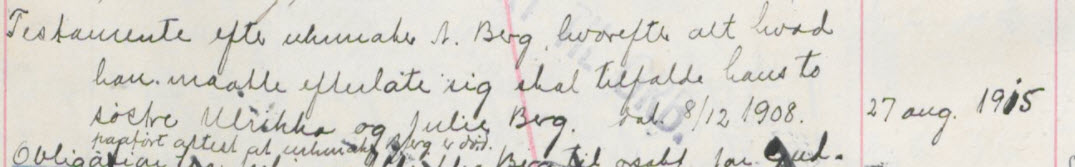 Testamente efter uhrmaker A. Berg, hvorefter alt hvad
han maatte efterlate sig skal tilfalde hans to
søstre Ulrikka og Julie Berg. dat. 8/12 1908. 27 aug. 1915
paaført attest at uhrmaker Berg er død.
Obligation Berg til for Gud-